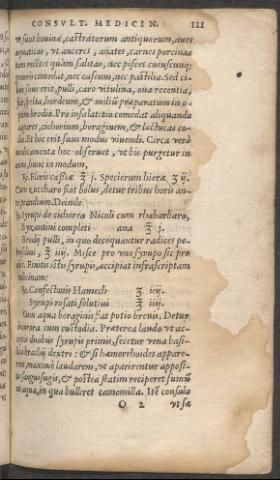 CONSVLT. MEDICIN. III
vt sunt bouinæ, castratorum antiquorum, aues
aquaticæ, vt anceres, anates, carnes porcinas
tam recétes quàm salitas, nec pisces cuiuscunq;
generis comedat, nec caseum, nec pastilla. Sed ci-
bus suus erit, pulli, caro vitulina, oua recentia,
, hordeum, & miliũ præparatum in o-
ptimo brodio. Pro insalatitio comedat aliquando
capares, cichorium, boraginem, & lactucas co-
ctas. Et hic erit suus modus viuendi. Circa verò
medicamenta hoc obseruet, vt bis purgetur in
anno, hunc in modum,
℞. Floris cassiæ ℥ j. Specierum hieræ ʒ ij.
Cum zuccharo fiat bolus, detur tribus horis an-
te prandium. Deinde
℞. Syrupi de cichorea Nicoli cum rhabarbaro,
Byzantini completi ana ℥ j.
Brodij pulli, in quo decoquantur radices pe-
troselini, ℥ iiij. Misce pro vno syrupo sic pro
Finitis istis syrupis, accipiat infrascriptam
medicinam:
℞. Confectionis Hamech ʒ iij.
Syrupi rosati solutiui ℥ iiij.
Cum aqua boraginis fiat potio breuis. Detur
in aurora cum custodia. Præterea laudo vt ac-
ceptis duobus syrupis primis, secetur vena basi-
lica brachij dextri: & si hæmorrhoides appare-
rent, maximè laudarem, vt aperirentur apposi-
tis sanguisugis, & postea statim reciperet fumũ
ex aqua, in qua bulleret camomilla. Itẽ consulo
O 2 vt